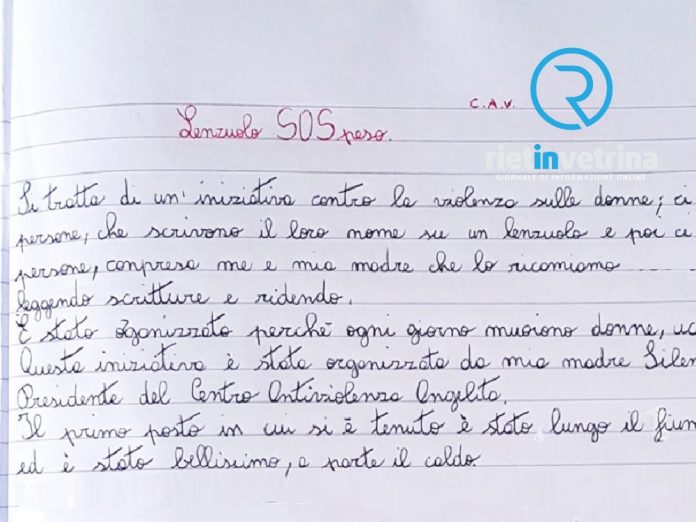 C.A.V.
Lenzuolo SOSpeso.
rietinvetrina
GIORNALE DI INFORMAZIONE ONLINE
Si tratta di un' iniziativa contro la violenza sulle donne; ci
persone, che scrivono il loro nome su un lenzuolo e poi ci
persone, conpresa me e mia madre che lo ricamiamo
leggendo scritture e ridendo.
È stato organizzato perchè ogni giorno muoiono donne, uc
Questa iniziativa è stata organizzata da mia madre Silen
Presidente del Centro Antiviolenza Angelita.
Il primo posto in cui si è tenuto è stato lungo il fium
ed è stato bellissimo, a parte il caldo.